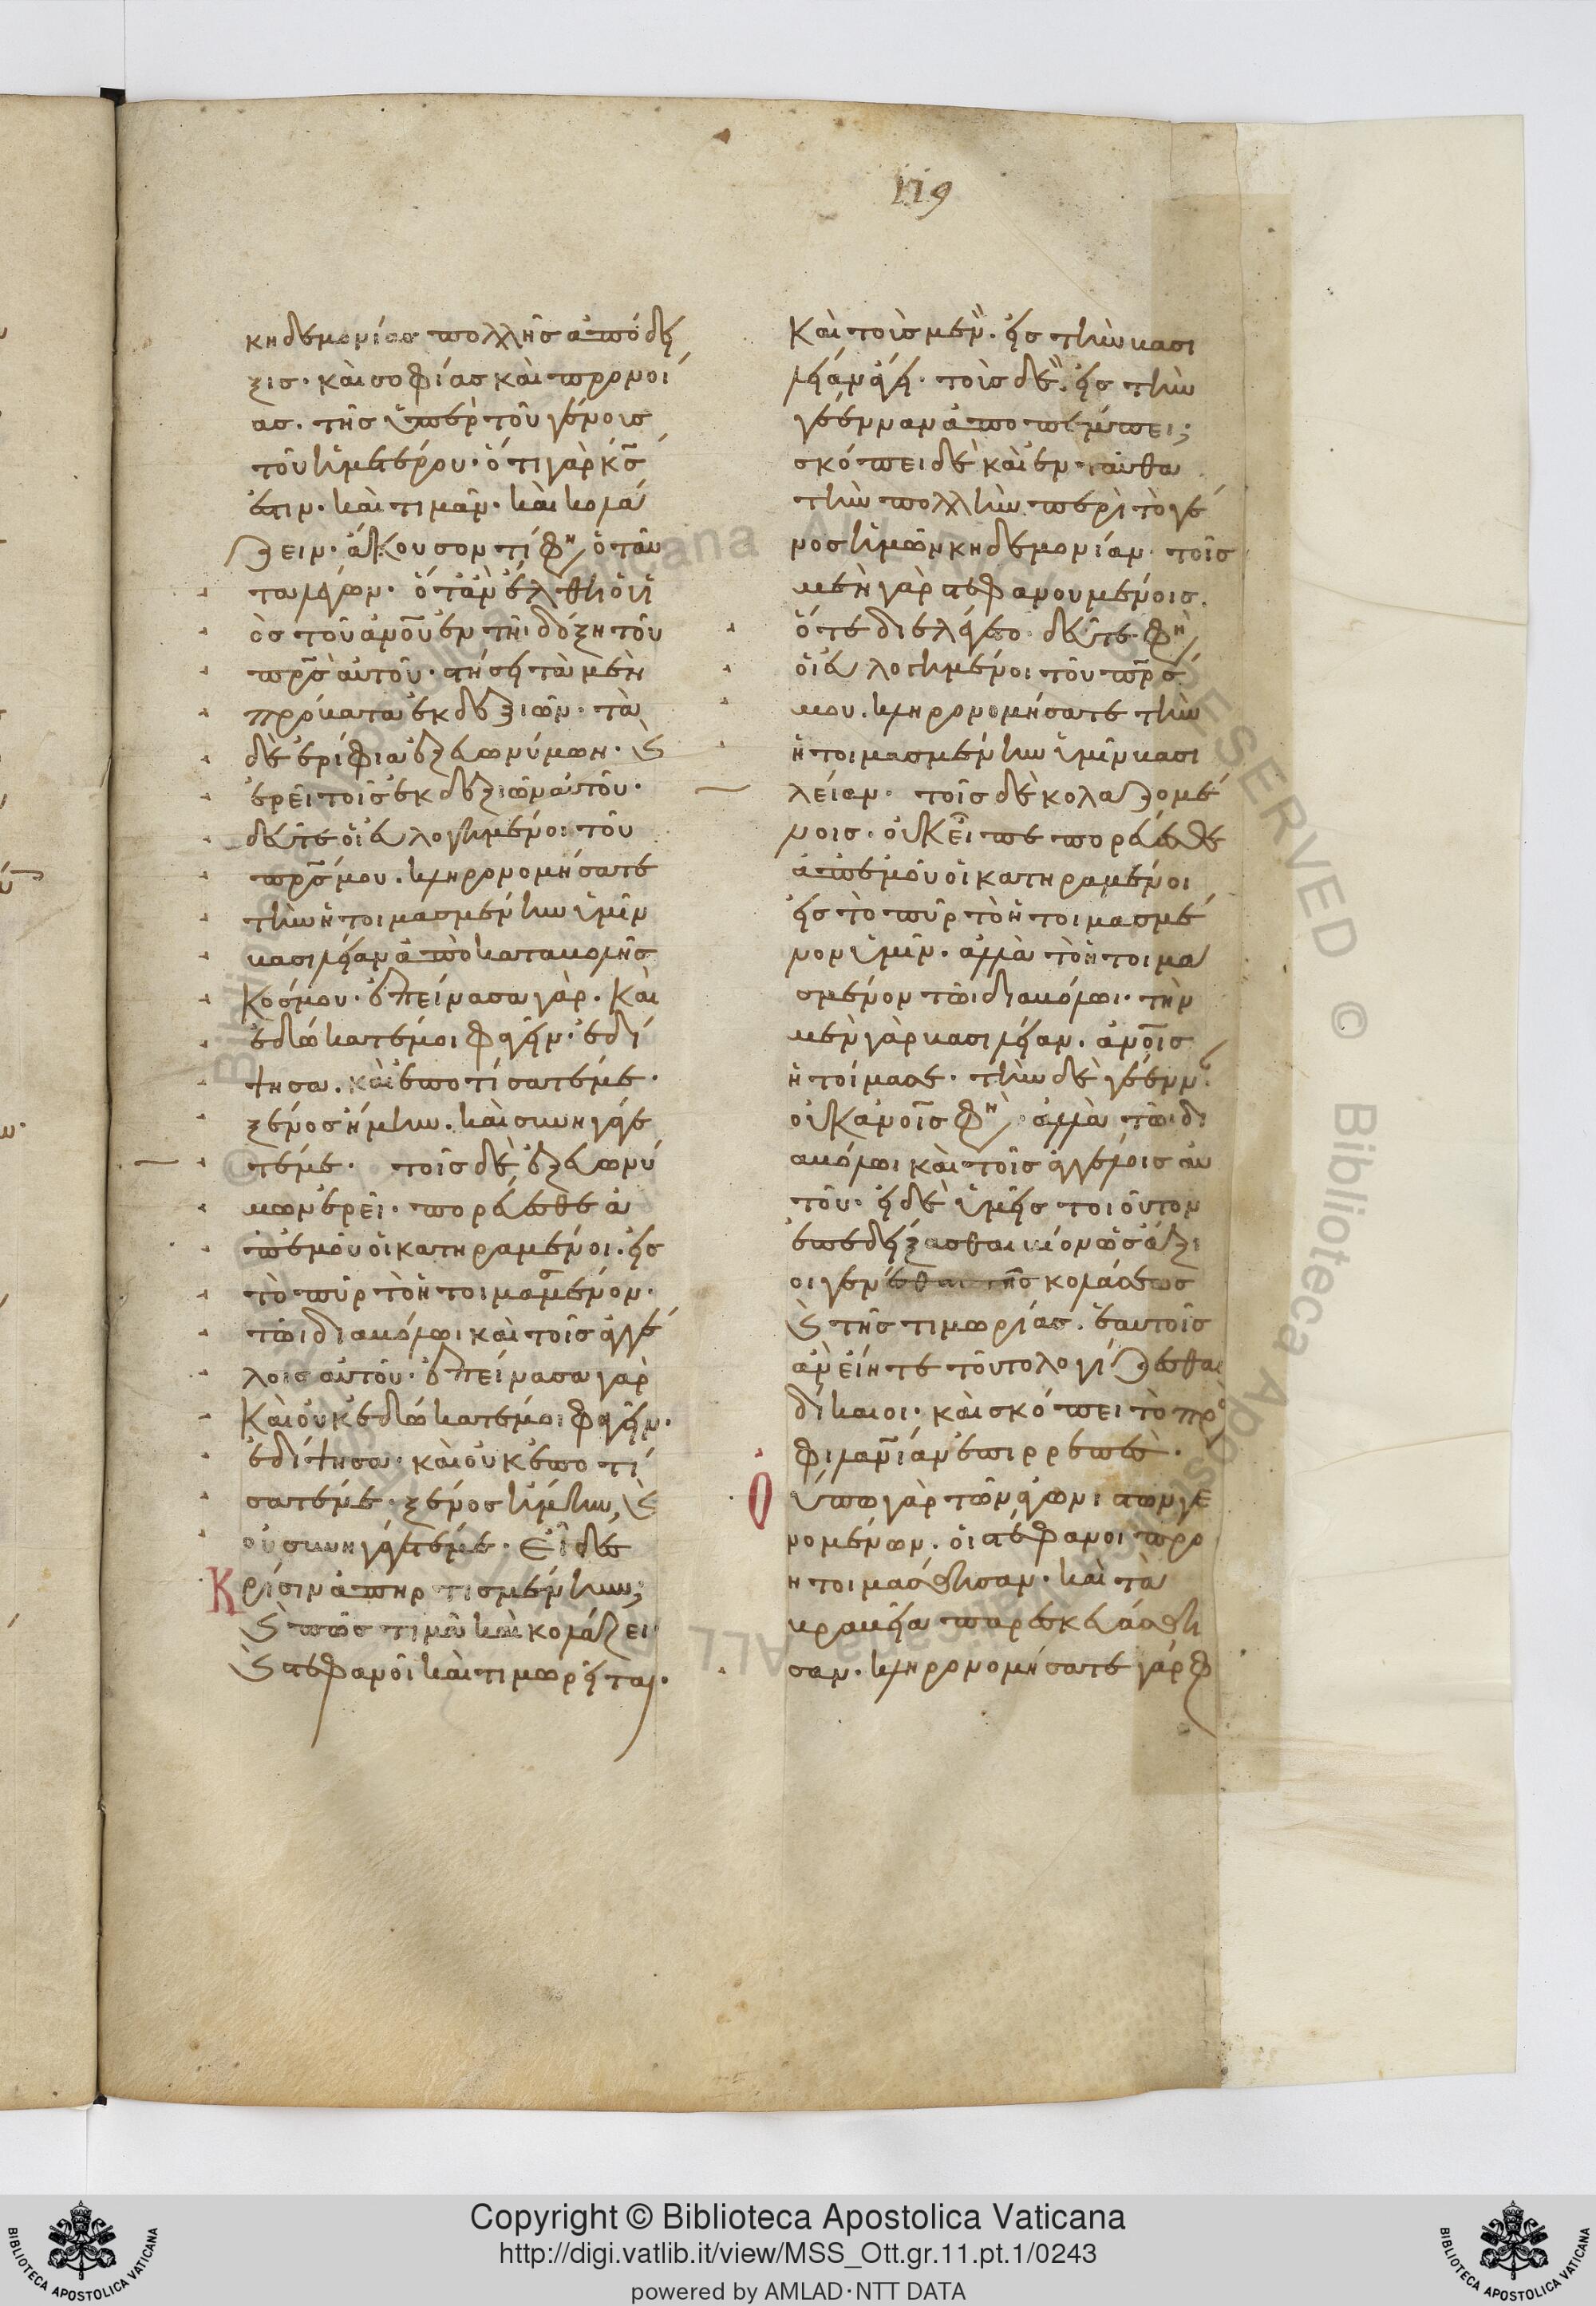 119
κηδεμονίας πολλῆς ἀπόδει
ξις· καὶ σοφίας καὶ προνοί
ας· τῆς ὑπὲρ τοῦ γένους
τοῦ ἡμετέρου· ὅτι γὰρ κς
ἐστιν· καὶ τιμᾶν· καὶ κολά
ζειν· ἄκουσον τί φη ὅταν
τῶν λέγων· ὅταν ἔλθη ὁ υἱ
ὸς τοῦ ἀνου ἐν τῆι δόξη τοῦ
πρς αὐτοῦ· στήσει τὰ μὲν
πρόβατα ἐκ δεξιῶν· τὰ
δὲ ἐρίφια ἐξ εὐωνύμων· καὶ
ἐρεῖ τοῖς ἐκ δεξιῶν αὐτοῦ·
δεῦτε οἱ εὐλογημένοι τοῦ
πρς μου· κληρονομήσατε
τὴν ἡτοιμασμένην ὑμῖν
βασιλείαν ἀπὸ καταβολῆς
κόσμου· ἐπείνασα γὰρ· καὶ
ἐδώκατέ μοι φαγεῖν· ἐδί
ψησα· καὶ ἐποτίσατέ με·
ξένος ἤμην· καὶ συνηγάγε
τέ με· τοῖς δὲ ἐξ εὐωνύ
μων ἐρεῖ· πορεύεσθε ἀ
π' ἐμοῦ οἱ κατηραμένοι· εἰς
τὸ πῦρ τὸ ἡτοιμασμένον·
τῶι διαβόλωι καὶ τοῖς ἀγγέ
λοις αὐτοῦ· ἐπείνασα γὰρ
καὶ οὐκ ἐδώκατέ μοι φαγεῖν·
ἐδίψησα· καὶ οὐκ ἐποτί
σατέ με· ξένος ἤμην, καὶ
οὐ συνηγάγετέ με· εἶδες
κρίσιν ἀπηρτισμένην;
καὶ πῶς τιμᾶ καὶ κολάζει
καὶ στεφανοῖ καὶ τιμωρεῖται·
Καὶ τοὺς μὲν· εἰς τὴν βασι
λείαν ἄγει· τοὺς δὲ· εἰς τὴν
γέενναν ἀποπέμπει;
σκόπει δὲ καὶ ἐνταῦθα
τὴν πολλὴν περὶ τὸ γέ
νος ἡμῶν κηδεμονίαν· τοῖς
μὲν γὰρ στεφανουμένοις·
ὅτε διελέγετο· δεῦτε φη
οἱ εὐλογημένοι τοῦ πρς
μου· κληρονομήσατε τὴν
ἡτοιμασμένην ὑμῖν βασι
λείαν· τοῖς δὲ κολαζομέ
νοις· οὐκ εἶπε πορεύεσθε
ἀπ' ἐμοῦ οἱ κατηραμένοι
εἰς τὸ πῦρ τὸ ἡτοιμασμέ
νον ὑμῖν· ἀλλὰ τὸ ἡτοιμα
σμένον τῶι διαβόλωι· τὴν
μὲν γὰρ βασιλείαν· ἀνοις
ἡτοίμασε· τὴν δὲ γέενν
οὐκ ἀνοις φη· ἀλλὰ τῶι δι
αβόλωι καὶ τοῖς ἀγγέλοις αὐ
τοῦ· εἰ δὲ ὑμεῖς τοιοῦτον
ἐπεδείξασθαι βίον ὡς ἄξι
οι γενέσθαι τῆς κολάσεως
καὶ τῆς τιμωρίας· ἑαυτοῖς
ἂν εἴητε τοῦτο λογίζεσθαι
δίκαιοι· καὶ σκόπει τὸ πρ
φιλανίαν ἐπιρρεπὲς·
Οὔπω γὰρ τῶν ἀγωνιστῶν γε
νομένων· οἱ στέφανοι προ
ητοιμάσθησαν· καὶ τὰ
βραβεῖα παρεσκευάσθη
σαν· κληρονομήσατε γάρ φ
Copyright © Biblioteca Apostolica Vaticana
http://digi.vatlib.it/view/MSS_Ott.gr.11.pt.1/0243
powered by AMLAD·NTT DATA
BIBLIOTECA APOSTOLICA VATICANA
BIBLIOTECA APOSTOLICA VATICANA